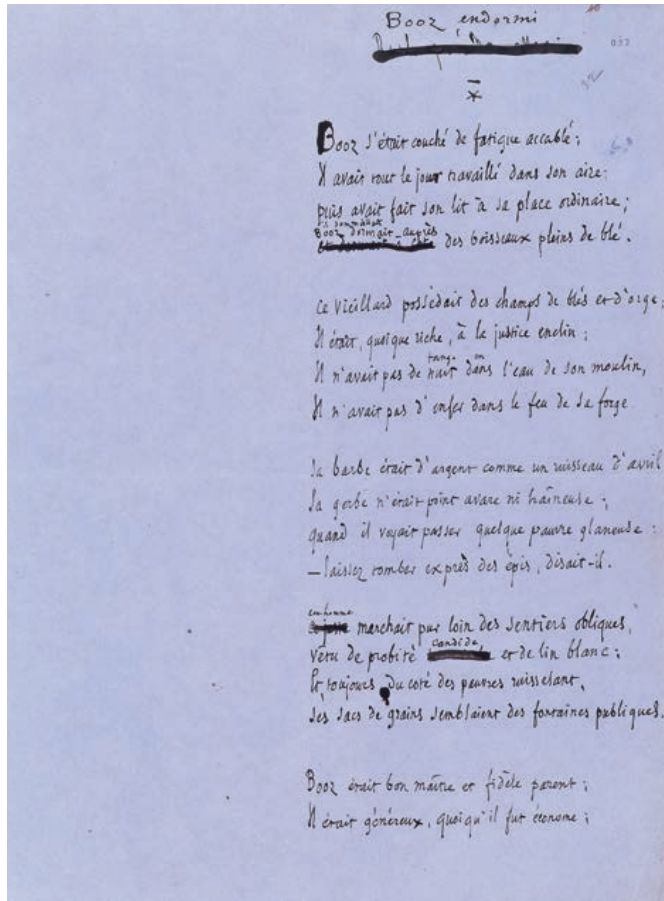 Booz endormi
Booz s'était couché de fatigue accablé ;
Il avait tout le jour travaillé dans son aire ;
puis avait fait son lit à sa place ordinaire ;
Booz dormait auprès
des boisseaux pleins de blé.
Ce vieillard possédait des champs de blés et d'orge ;
Il était, quoique riche, à la justice enclin ;
fange en
Il n'avait pas de nuit dans l'eau de son moulin,
Il n'avait pas d'enfer dans le feu de sa forge
Sa barbe était d'argent comme un ruisseau d'avril
Sa gerbe n'était point avare ni haineuse ;
quand il voyait passer quelque pauvre glaneuse :
— laissez tomber exprès des épis, disait-il.
cet homme
marchait pur loin des sentiers obliques,
candide,
vêtu de probité et de lin blanc ;
Et toujours du côté des pauvres ruisselant,
Ses sacs de grains semblaient des fontaines publiques.
Booz était bon maître et fidèle parent ;
Il était généreux, quoiqu'il fut économe ;